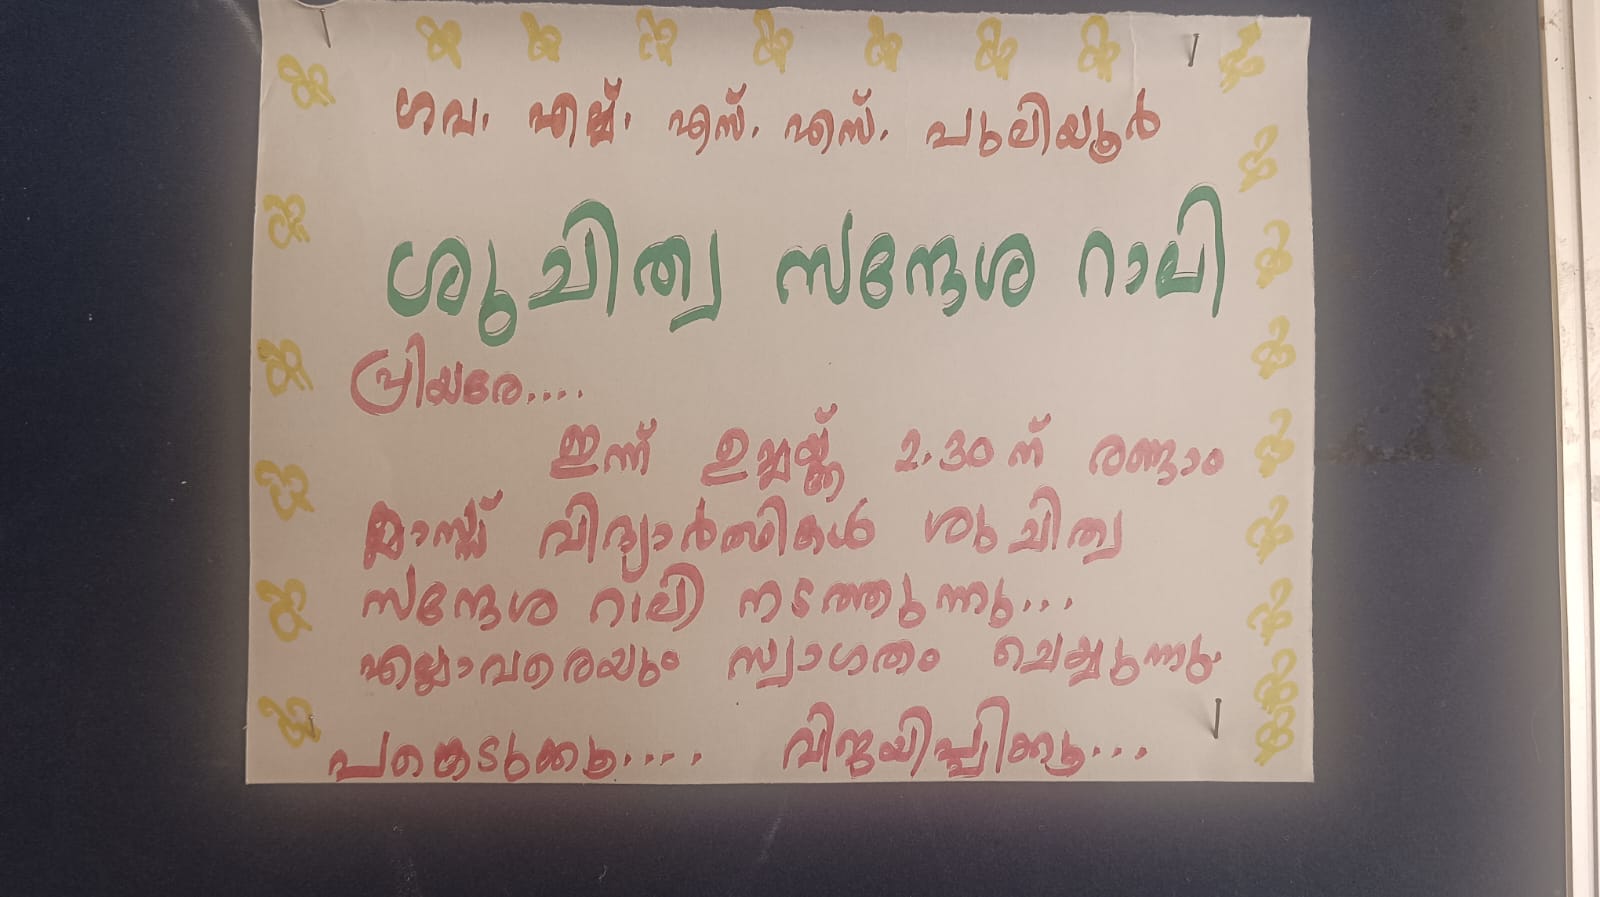 ഗവ. എച്ച്. എസ്. എസ്. പുലിയൂർ
ശുചിത്വ സന്ദേശ റാലി
പ്രിയരേ....
ഇന്ന് ഉച്ചയ്ക്ക് 2.30 ന് രണ്ടാം
ക്ലാസ്സ് വിദ്യാർത്ഥികൾ ശുചിത്വ
സന്ദേശ റാലി നടത്തുന്നു...
എല്ലാവരെയും സ്വാഗതം ചെയ്യുന്നു.
പങ്കെടുക്കൂ.... വിജയിപ്പിക്കൂ...